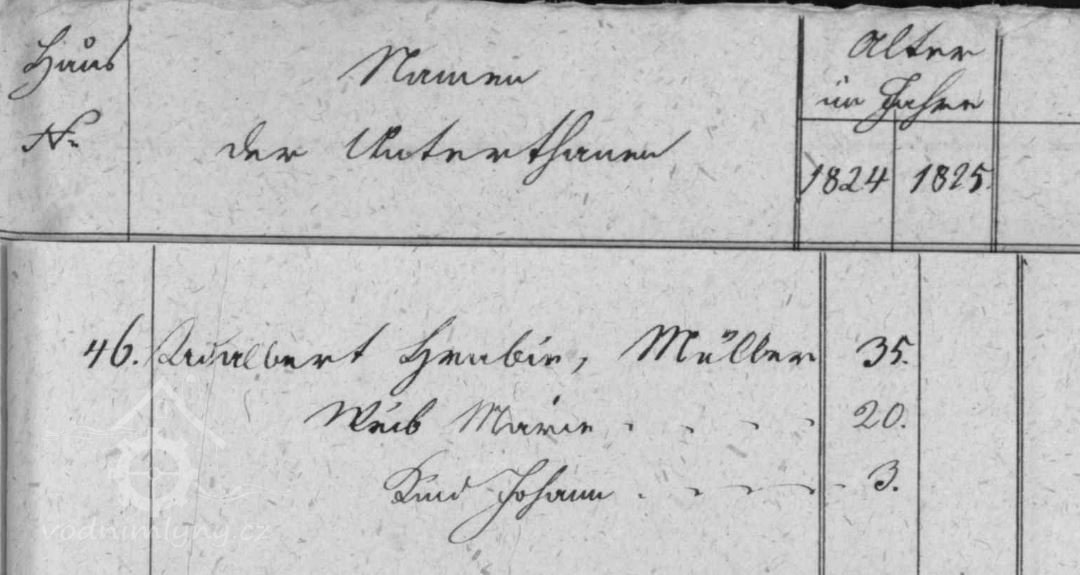 Haus
Nr.
Namen
der Unterthanen
Alter
im Jahre
1824 1825
46. Adalbert Hrabie, Müller 35.
Weib Marie 20.
Kind Johann 3.
vodnimlyny.cz